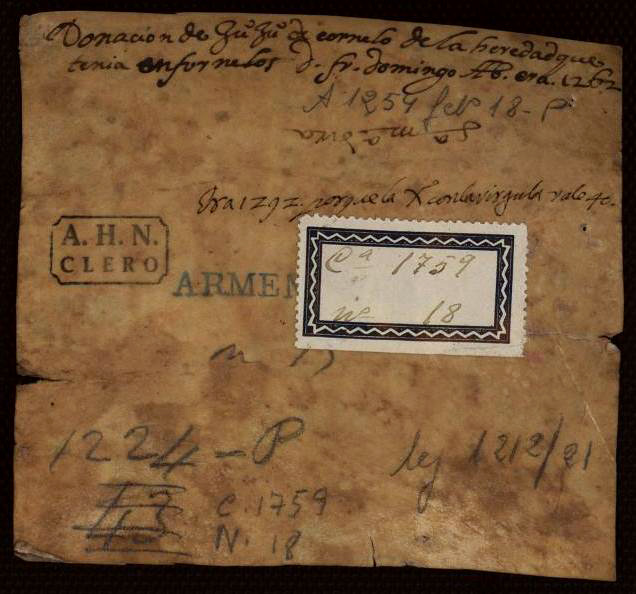 Donacion de de cornelo de la heredad que
tenia en fornelos D. fr. domingo Ab. era. 1262
A 1254 feb 18-P
Era 1292. porque la X con la virgula vale 40.
A. H. N.
CLERO
ARMEN
Cª 1759
nº 18
n
1224-P
leg 1212/21
C. 1759
N. 18